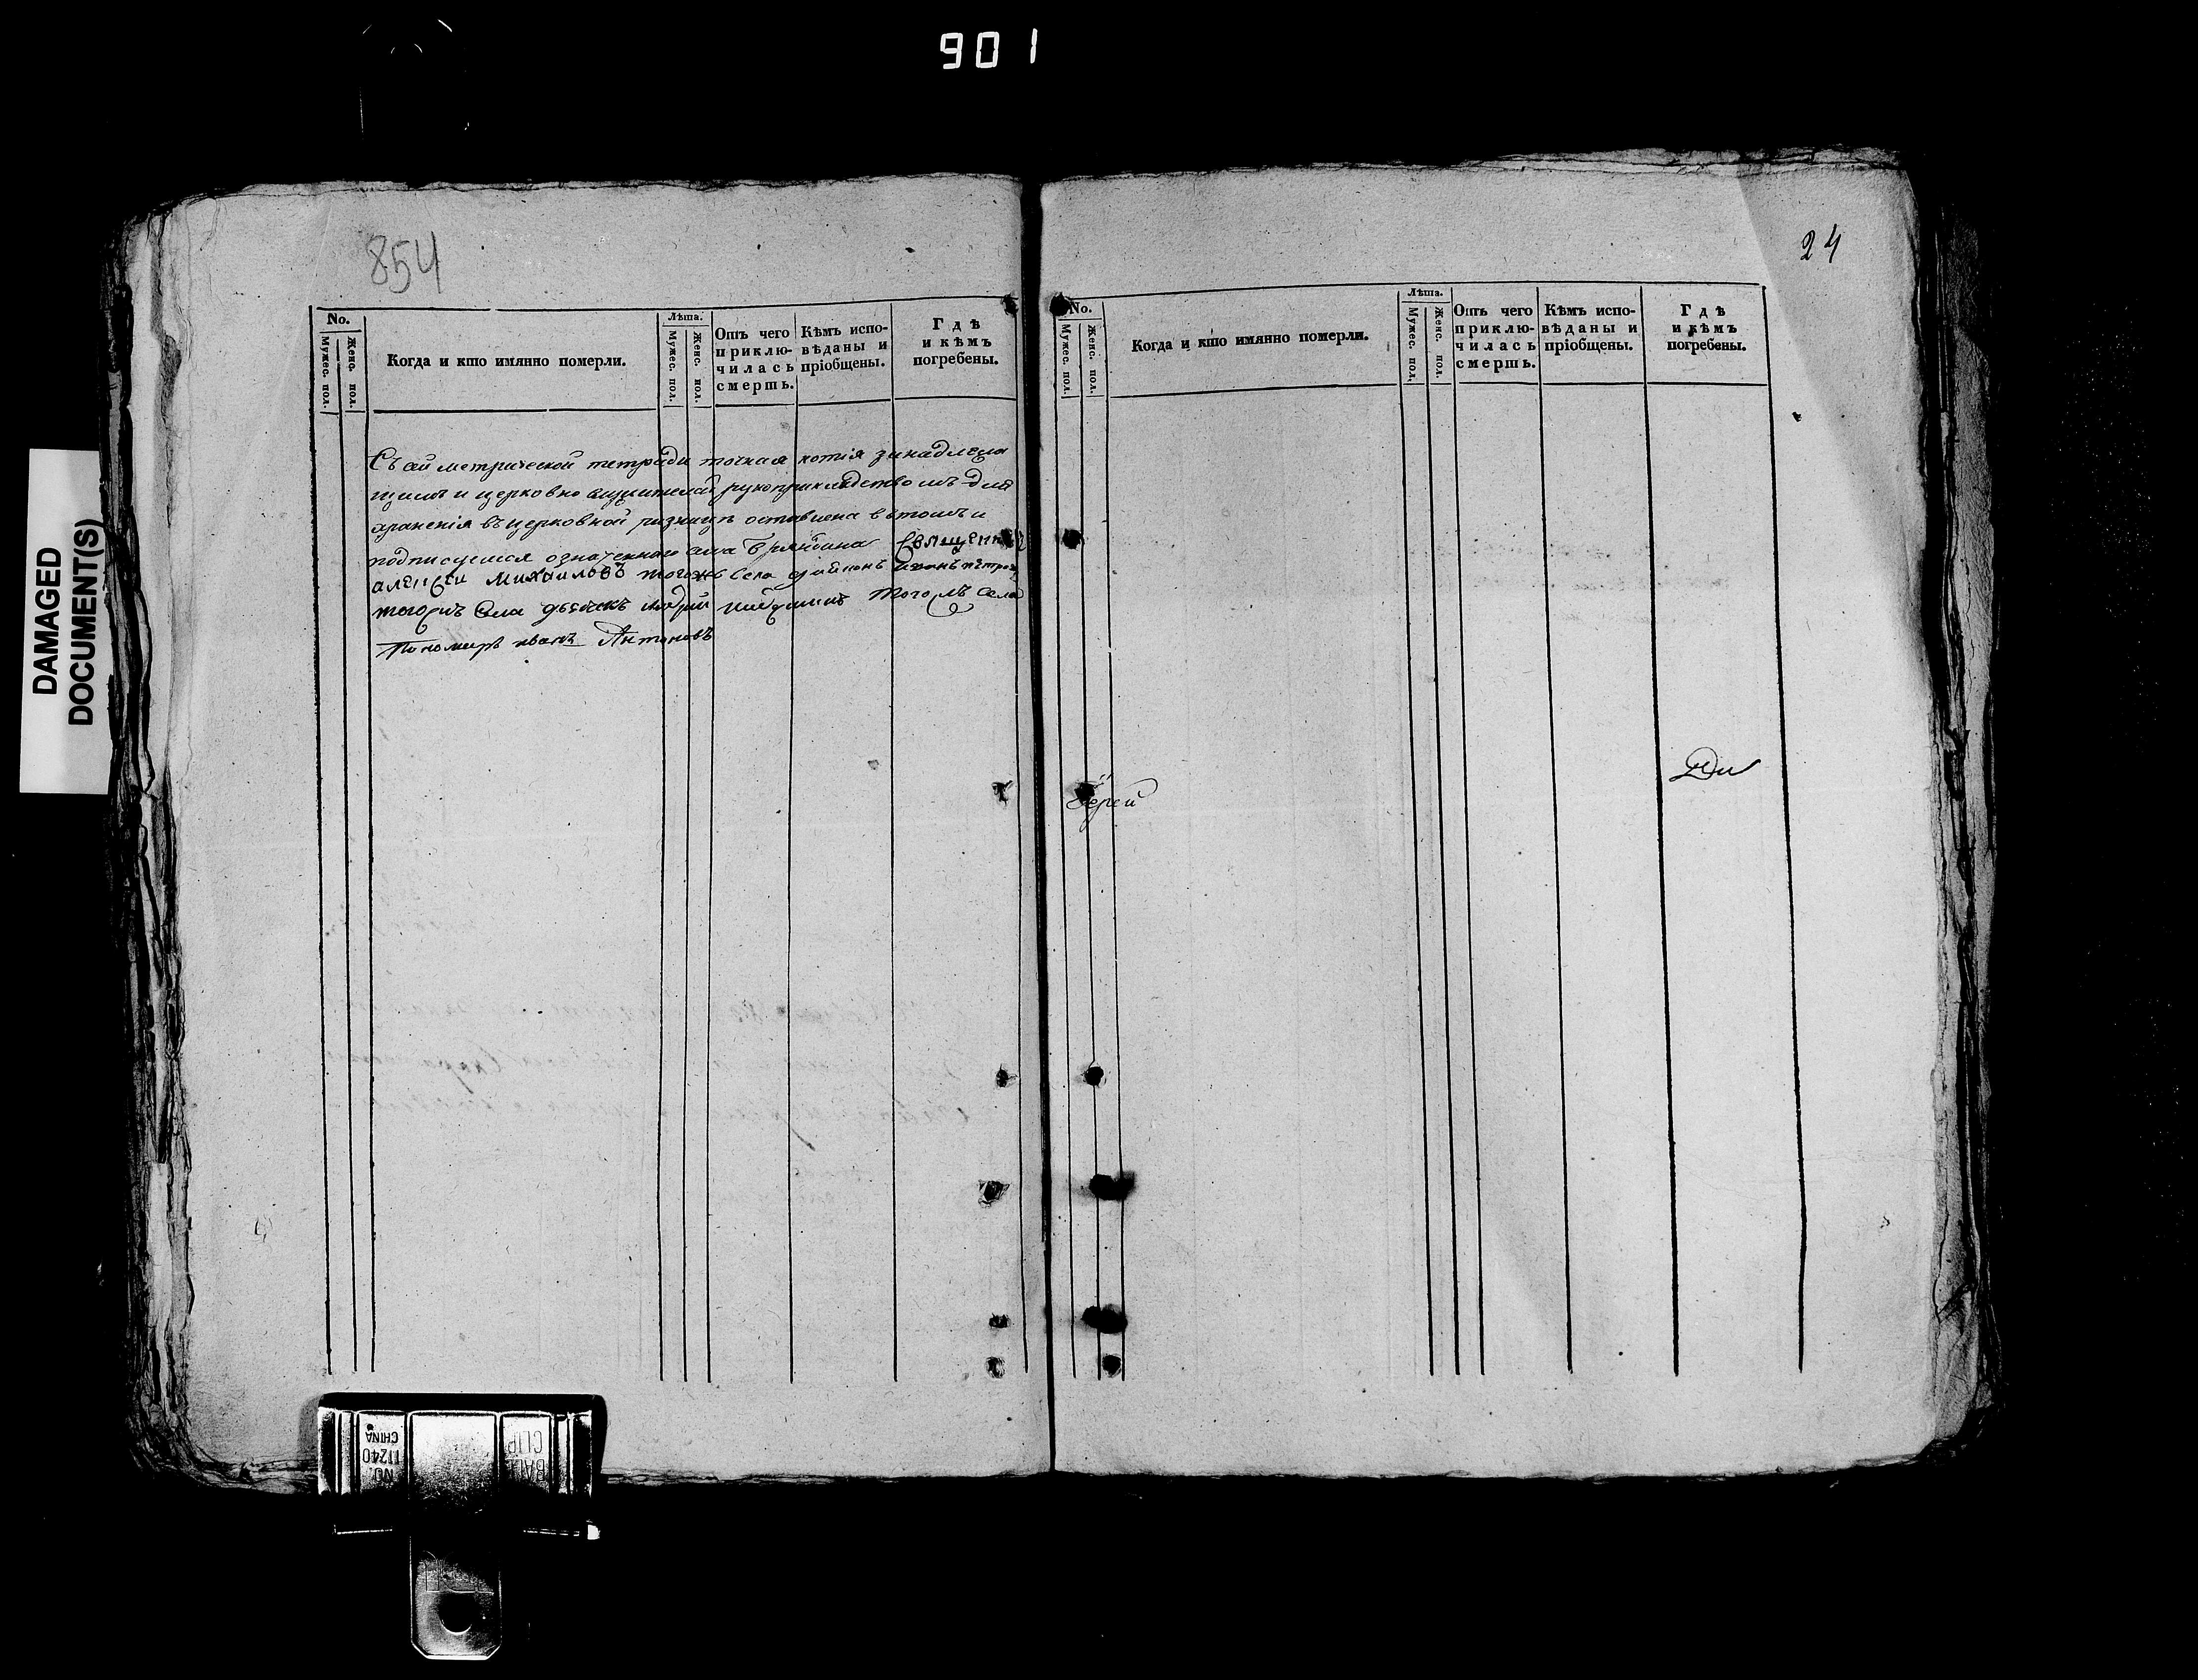 901
DAMAGED
DOCUMENT(S)
854
No.
Мужес. пол.
Женс. пол.
Когда и кто имянно померли.
Лѣта.
Мужес. пол.
Женс. пол.
Отъ чего
приклю-
чилась
смерть.
Кѣмъ испо-
вѣданы и
пріобщены.
Гдѣ
и кѣмъ
погребены.
Съ сей метрической тетради точная копія за надлежа
щимъ и церковно служителей рукоприкладствомъ для
храненія въ церковной ризницѣ оставлена въ томъ и
подписуемся означеннаго села Священникъ
алексей михаиловъ тогожъ села Иванъ петровъ
тогожъ села дьячекъ тогожъ села
Пономарь иванъ Антоновъ
24
No.
Мужес. пол.
Женс. пол.
Когда и кто имянно померли.
Лѣта.
Мужес. пол.
Женс. пол.
Отъ чего
приклю-
чилась
смерть.
Кѣмъ испо-
вѣданы и
пріобщены.
Гдѣ
и кѣмъ
погребены.
Іерей
NO.
11240
CHINA
CLIP